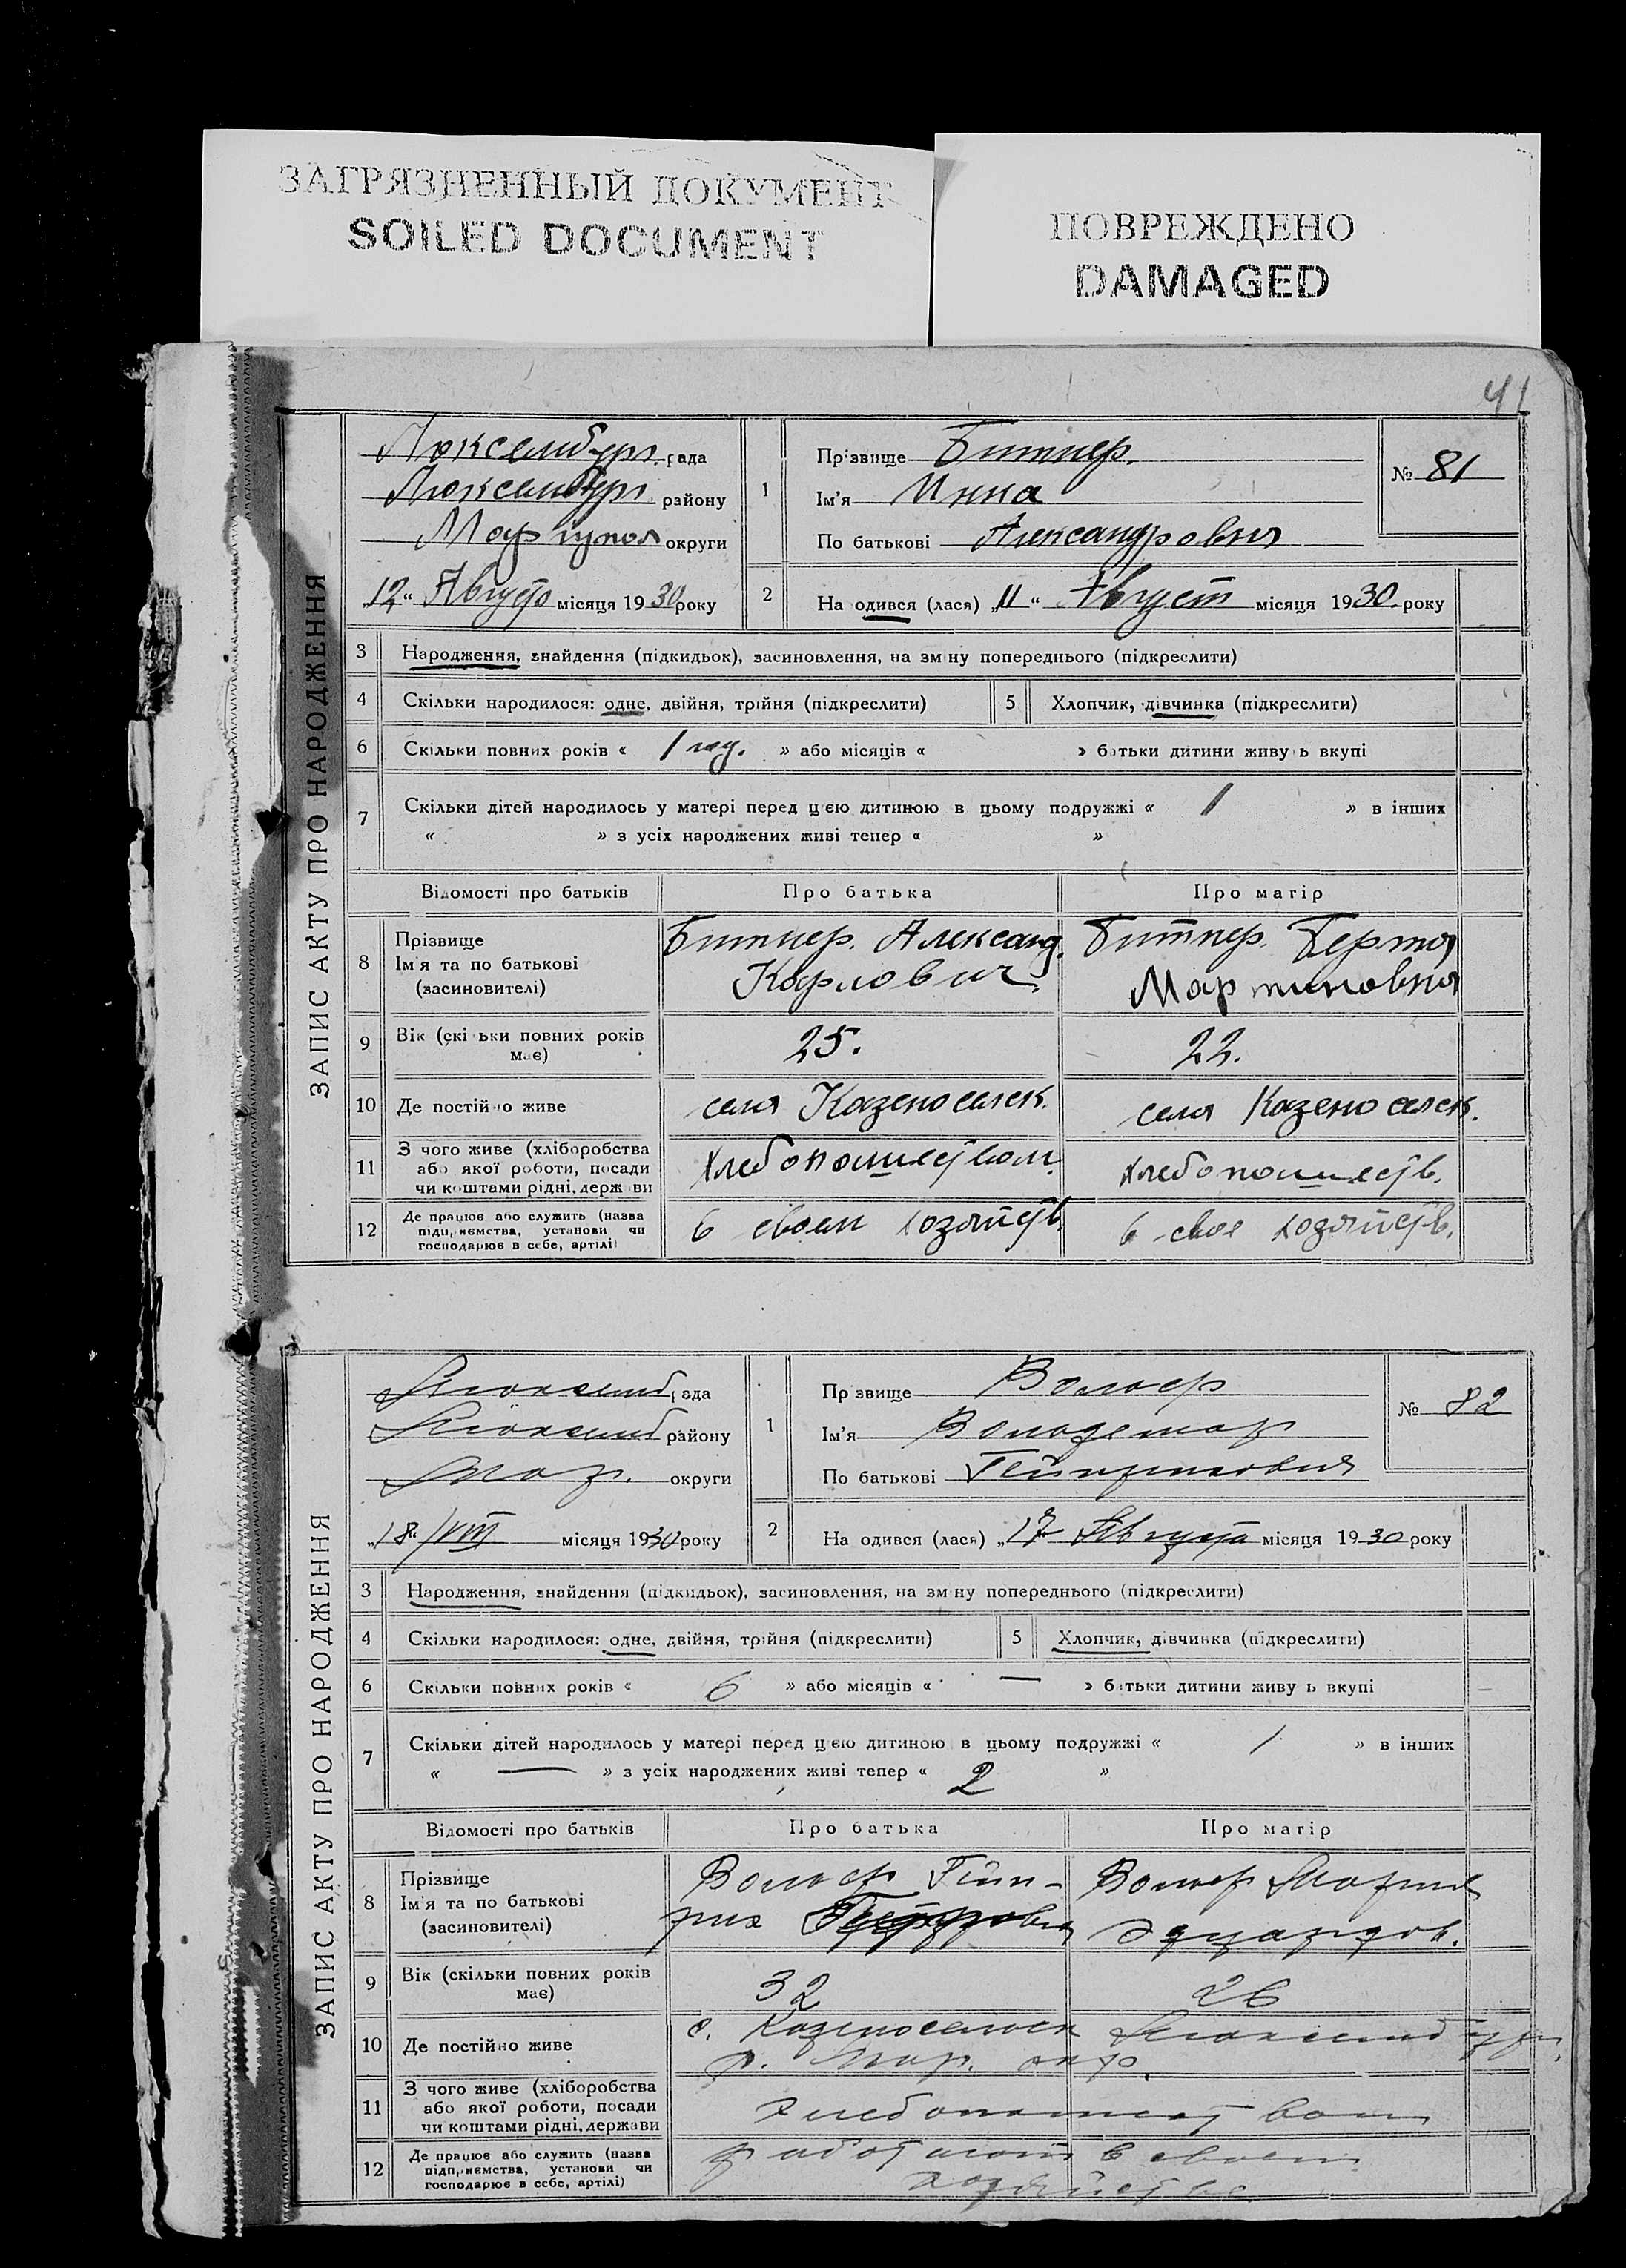 ЗАГРЯЗНЕННЫЙ ДОКУМЕНТ
SOILED DOCUMENT
ПОВРЕЖДЕНО
DAMAGED
41
ЗАПИС АКТУ ПРО НАРОДЖЕННЯ
Люксембург. рада
Люксембург району
Мариупол округи
„12“ Августа місяця 1930 року
1 Прізвище Битнер.
Ім'я Инна
По батькові Александровня
№ 81
2 На одився (лася) „11“ Август місяця 1930 року
3 Народження, знайдення (підкидьок), засиновлення, на зм ну попереднього (підкреслити)
4 Скільки народилося: одне, двійня, трійня (підкреслити) 5 Хлопчик, дівчинка (підкреслити)
6 Скільки повних років « 1 год. » або місяців « » батьки дитини живу ь вкупі
7 Скільки дітей народилось у матері перед цією дитиною в цьому подружжі « 1 » в інших
« » з усіх народжених живі тепер « »
Відомості про батьків Про батька Про матір
8 Прізвище
Ім'я та по батькові
(засиновителі)
Битнер. Александ.
Карлович.
Битнер. Берта
Мартиновня
9 Вік (скі ьки повних років
має)
25. 22.
10 Де постійно живе села Казеноселск. села Казеноселск.
11 З чого живе (хліборобства
або якої роботи, посади
чи коштами рідні, держ ви
Хлебопашеством. хлебопашеств.
12 Де працює або служить (назва
підприємства, установи чи
господарює в себе, артілі)
в своем хозяйств. в свое хозяйств.
ЗАПИС АКТУ ПРО НАРОДЖЕННЯ
Люксемб рада
Люксемб району
Мар. округи
„18. /VIII місяця 1930 року
1 Пр звище
Ім'я Вольдемар
По батькові Гейнрихович
№ 82
2 На одився (лася) „17 Августа місяця 1930 року
3 Народження, знайдення (підкидьок), засиновлення, на зм ну попереднього (підкреслити)
4 Скільки народилося: одне, двійня, трійня (підкреслити) 5 Хлопчик, дівчинка (підкреслити)
6 Скільки повних років « 6 » або місяців « — » батьки дитини живу ь вкупі
7 Скільки дітей народилось у матері перед цією дитиною в цьому подружжі « 1 » в інших
« — » з усіх народжених живі тепер « 2 »
Відомості про батьків Про батька Про матір
8 Прізвище
Ім'я та по батькові
(засиновителі)
Гейн-
рих
Эдуардов.
9 Вік (скільки повних років
має)
32 26
10 Де постійно живе
с. Казеносельск Люксембург.
р. Мар. окр.
11 З чого живе (хліборобства
або якої роботи, посади
чи коштами рідні, держави
Хлебопашеством
12 Де працює або служить (назва
підприємства, установи чи
господарює в себе, артілі)
работают в своем
хозяйстве